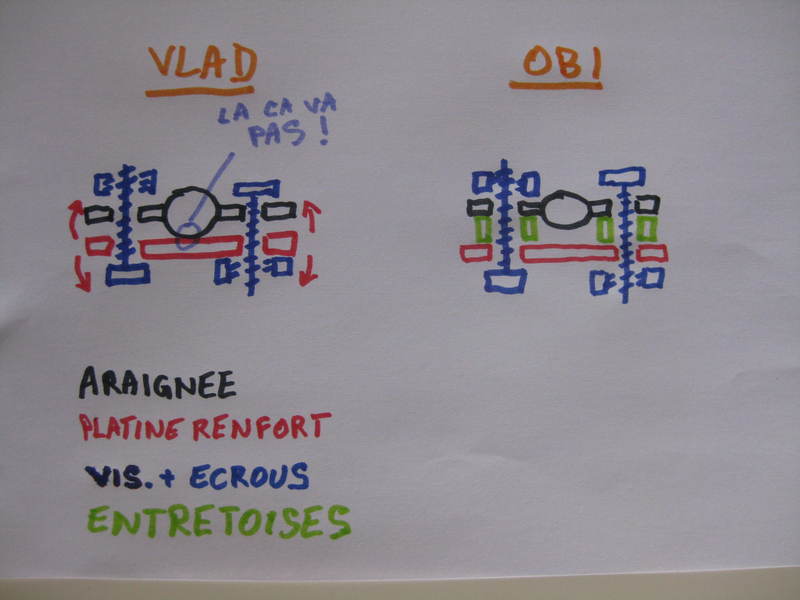 VLAD
OBI
LA CA VA
PAS !
ARAIGNEE
PLATINE RENFORT
VIS. + ECROUS
ENTRETOISES